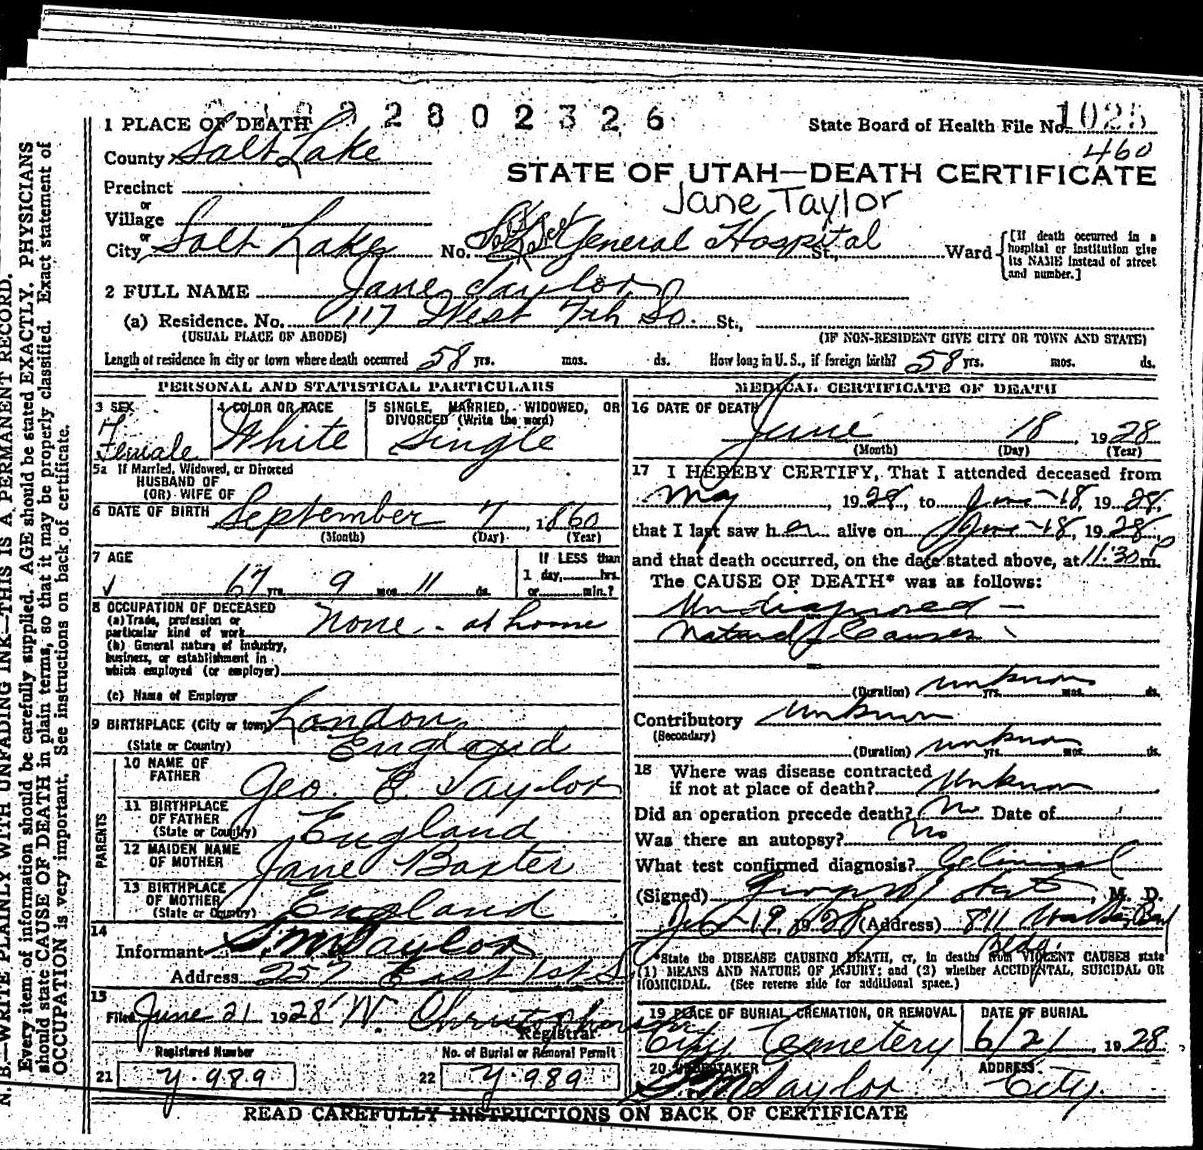 2 8 0 2 3 2 6
1025
1 PLACE OF DEATH
State Board of Health File No.
460
County Salt Lake
STATE OF UTAH—DEATH CERTIFICATE
Precinct
Jane Taylor
or
Village
or
City Salt Lake No. General Hospital St., Ward
[If death occurred in a hospital or institution give its NAME instead of street and number.]
2 FULL NAME Jane Taylor
(a) Residence. No. 117 West 7th So. St.,
(USUAL PLACE OF ABODE) (IF NON-RESIDENT GIVE CITY OR TOWN AND STATE)
Length of residence in city or town where death occurred 58 yrs. mos. ds. How long in U.S., if foreign birth? 58 yrs. mos. ds.
PERSONAL AND STATISTICAL PARTICULARS
3 SEX
Female
4 COLOR OR RACE
White
5 SINGLE, MARRIED, WIDOWED, OR DIVORCED (Write the word)
Single
5a If Married, Widowed, or Divorced
HUSBAND OF
(OR) WIFE OF
6 DATE OF BIRTH September 7, 1860
(Month) (Day) (Year)
7 AGE
67 yrs. 9 mos. 11 ds.
If LESS than
1 day, hrs.
or min.?
8 OCCUPATION OF DECEASED
(a) Trade, profession or
particular kind of work None - at home
(b) General nature of industry,
business, or establishment in
which employed (or employer)
(c) Name of Employer
9 BIRTHPLACE (City or town) London
(State or Country) England
PARENTS
10 NAME OF FATHER Geo. E. Taylor
11 BIRTHPLACE OF FATHER
(State or Country) England
12 MAIDEN NAME OF MOTHER Jane Baxter
13 BIRTHPLACE OF MOTHER
(State or Country) England
14
Informant S. M. Taylor
Address 257 East 1st S
15
Filed June 21 1928 W. Christopherson
Registrar
Registered Number
No. of Burial or Removal Permit
21 Y-989
22 Y-989
MEDICAL CERTIFICATE OF DEATH
16 DATE OF DEATH
June 18, 1928
(Month) (Day) (Year)
17 I HEREBY CERTIFY, That I attended deceased from
May, 1928, to June-18, 1928,
that I last saw her alive on June-18, 1928,
and that death occurred, on the date stated above, at 11:30 p m.
The CAUSE OF DEATH* was as follows:
Undiagnosed -
Natural Causes
(Duration) unknown yrs. mos. ds.
Contributory Unknown
(Secondary)
(Duration) unknown yrs. mos. ds.
18 Where was disease contracted
if not at place of death? Unknown
Did an operation precede death? No Date of
Was there an autopsy? No
What test confirmed diagnosis? Clinical
(Signed) M. D.
19, 1928 (Address) 811
Bldg.
*State the DISEASE CAUSING DEATH, or, in deaths from VIOLENT CAUSES state
(1) MEANS AND NATURE OF INJURY; and (2) whether ACCIDENTAL, SUICIDAL OR
HOMICIDAL. (See reverse side for additional space.)
19 PLACE OF BURIAL, CREMATION, OR REMOVAL
City Cemetery
DATE OF BURIAL
6/21, 1928
20 UNDERTAKER
S. M. Taylor
ADDRESS
City.
READ CAREFULLY INSTRUCTIONS ON BACK OF CERTIFICATE
N. B.—WRITE PLAINLY WITH UNFADING INK—THIS IS A PERMANENT RECORD.
Every item of information should be carefully supplied. AGE should be stated EXACTLY. PHYSICIANS
should state CAUSE OF DEATH in plain terms, so that it may be properly classified. Exact statement of
OCCUPATION is very important. See instructions on back of certificate.